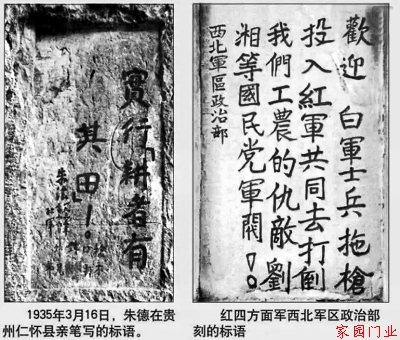 實行「耕者有
其田」!
朱德
歡迎 白軍士兵拖槍
投入紅軍共同去打倒
我們工農的仇敵劉
湘等國民党軍閥!
西北軍區政治部
1935年3月16日，朱德在贵
州仁怀县亲笔写的标语。
红四方面军西北军区政治部
刻的标语
家园门业